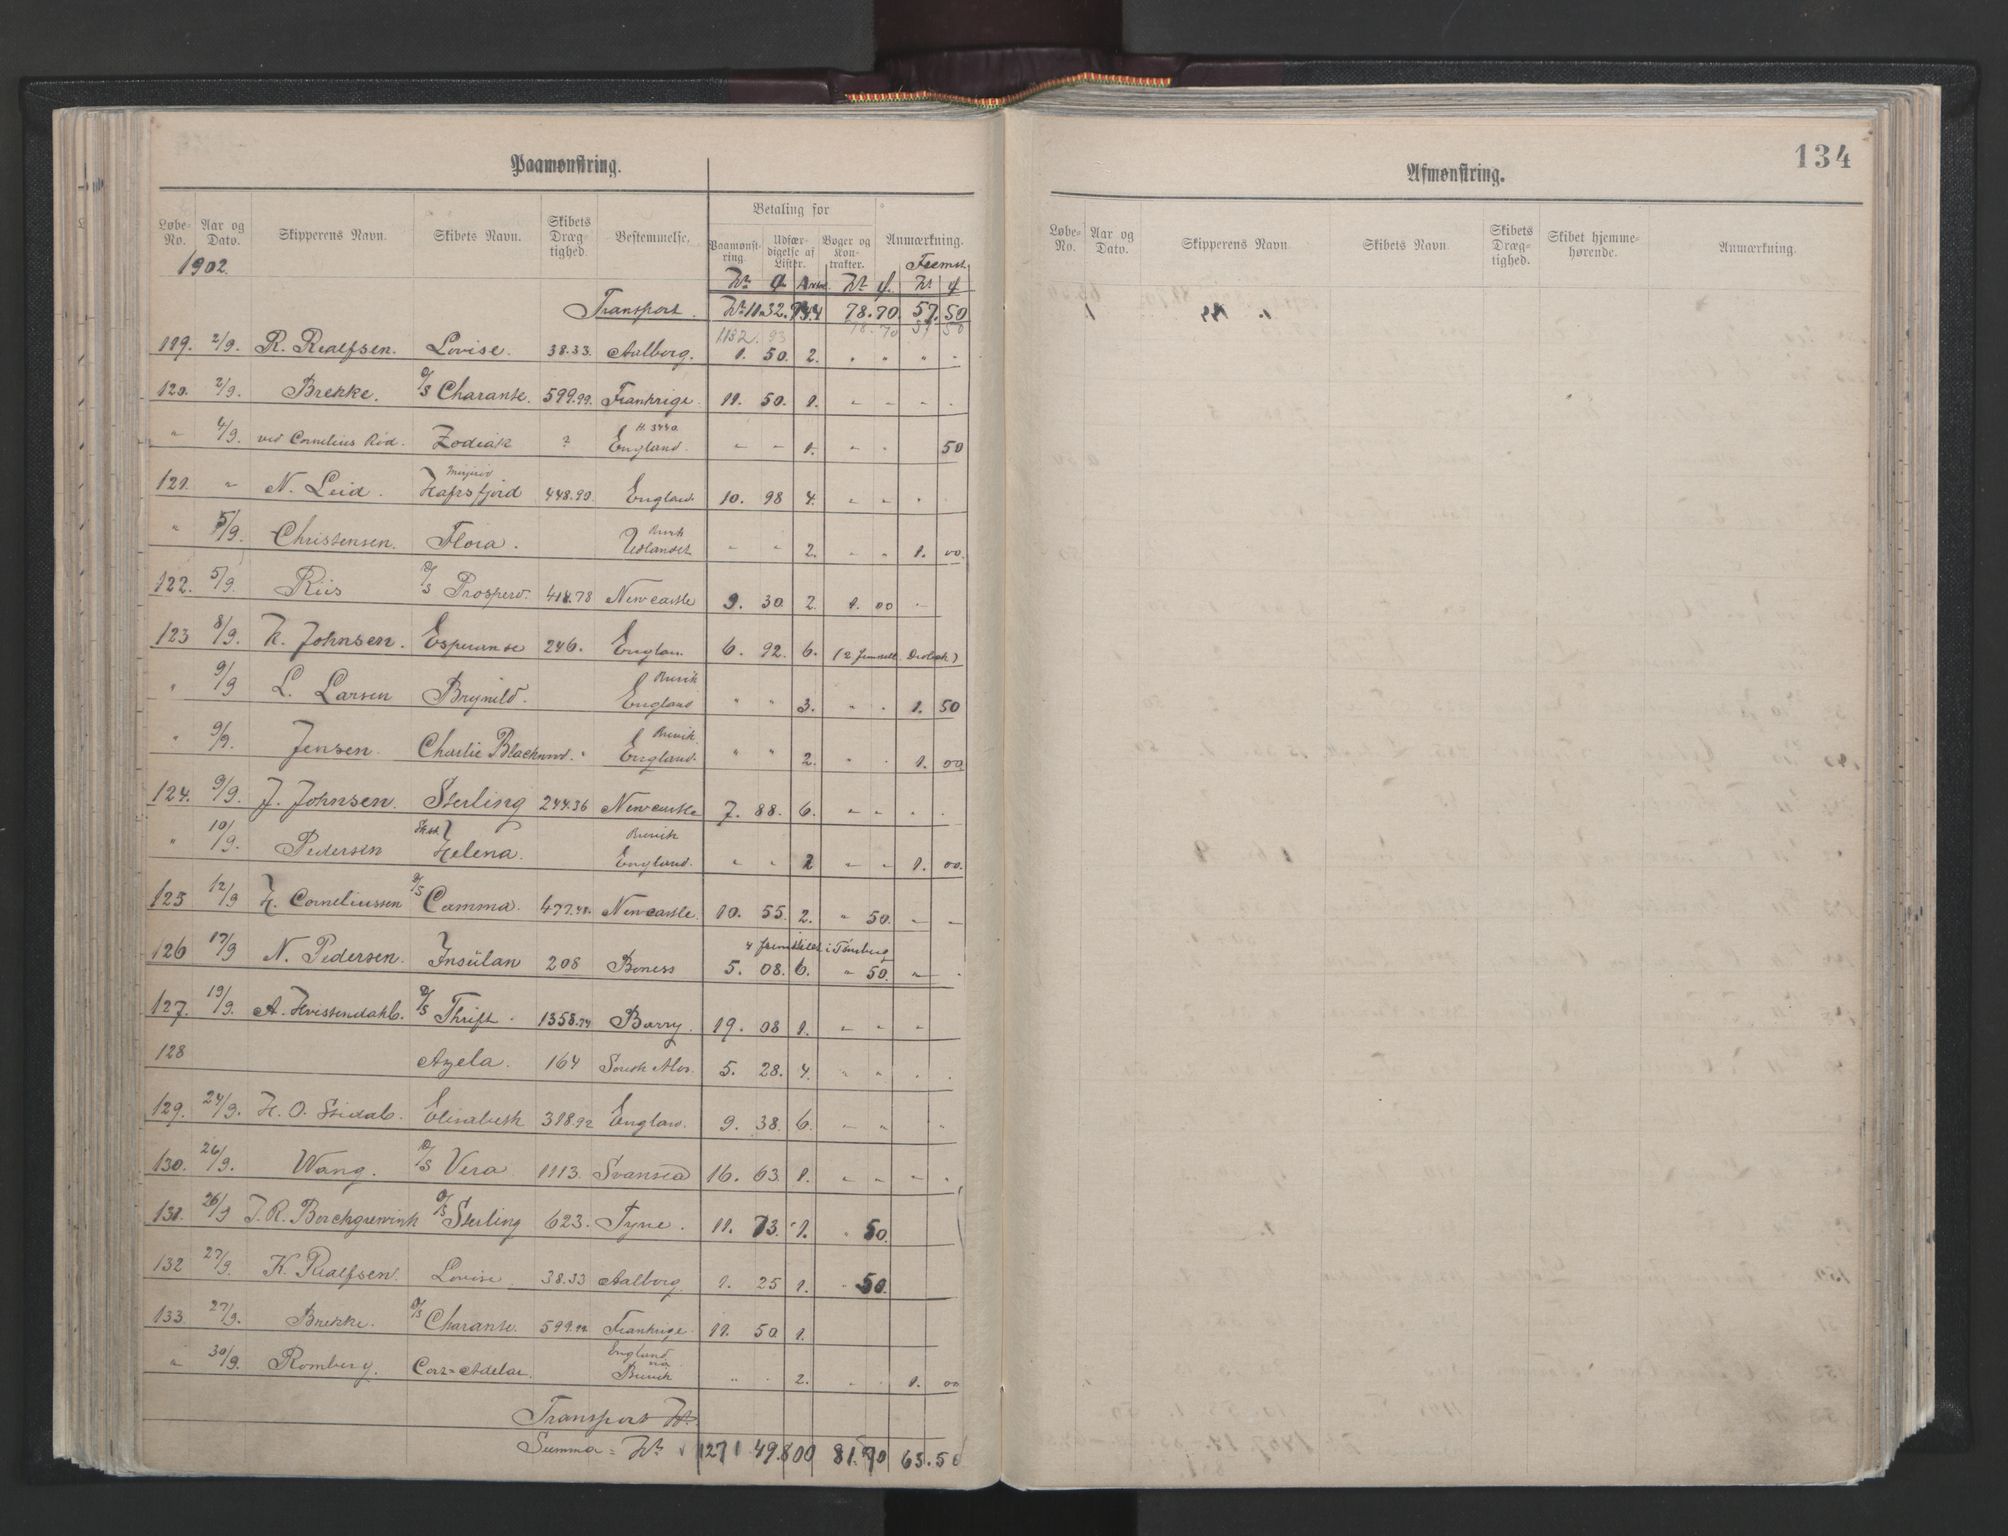 Paamønstring.
Løbe-No. Aar og Dato. Skipperens Navn. Skibets Navn. Skibets Dræg-tighed. Bestemmelse. Betaling for Paamønst-ring. Udfær-digelse af Lister. Bøger og Kon-trakter. Anmærkning.
1902. Fremst.
Kr. Ø Antal. Kr. Ø. Kr Ø
Transport. Kr. 1132. 78.70. 57.50
1132.93 78.70 57 50
119. 2/9. R. Realfsen. Lovise. 38.33. Aalborg. 1. 50. 2. " " " -
120. 2/9. Brekke. D/S Charante. 599.99. Frankrige. 11. 50. 1. - - - -
" 4/9. ved Cornelius Rød. Zodiak ? England. - - 1. - - 50
121. " N. Leid. Hafrsfjord 448.90. England. 10. 98 4. - - - -
" 5/9. Christensen. Flora. Udlandet. - " 2. - - 1. 00.
122. 5/9. Riis D/S Prospero. 418.78 Newcastle 9. 30. 2. 1. 00 -
123 8/9. H. Johnsen. Esperanse 246. Englan. 6. 92. 6. (2
" 9/9 L. Larsen Brynild. England " " 3. " . 1. 50
" 9/9. Jensen. Charlie England. " " 2. " . 1. 00
124. 9/9. J. Johnsen. Sterling 244.36 Newcastle 7. 88. 6. - - - -
" 10/9. Pedersen Helena. England. " " 2 - - 1. 00.
125 12/9 H. Corneliussen D/S Camma. 477.48. Newcastle. 10. 55. 2. " 50. - -
126 17/9 N. Pedersen. Insulan 208 Boness 4 fremstillet i Tønsberg 5. 08. 6. " 50. " .
127. 19/9. A. Hvistendahl. D/S Thrift. 1358.74 Barry. 19. 08 1. - - -
128 Azela. 164 5. 28. 4. " " . .
129. 24/9. H. O. Elisabeth 318.92 Englan. 9. 38. 6. - " "
130. 26/9. Wang. D/S Vera 1113. Svansea 16. 63. 1. " " - "
131. 26/9 J. R. Borchgrevink D/S Sterling 623. Tyne. 11. 73. 1. " 50.
132 27/9. K. Realfsen. Lovise. 38.33 Aalborg. 1. 25 1. " 50.
133. 27/9. Brekke. D/S Charante. 599.99 Frankrige. 11. 50 1.
" 30/9. Romberg. Cort Adelar. England via " . 2. - . 1. 00
Transport Kr.
Summa = Kr. 1271 49 800 81.70 65.50
134
Afmønstring.
Løbe-No. Aar og Dato. Skipperens Navn. Skibets Navn. Skibets Dræg-tighed. Skibet hjemme-hørende. Anmærkning.